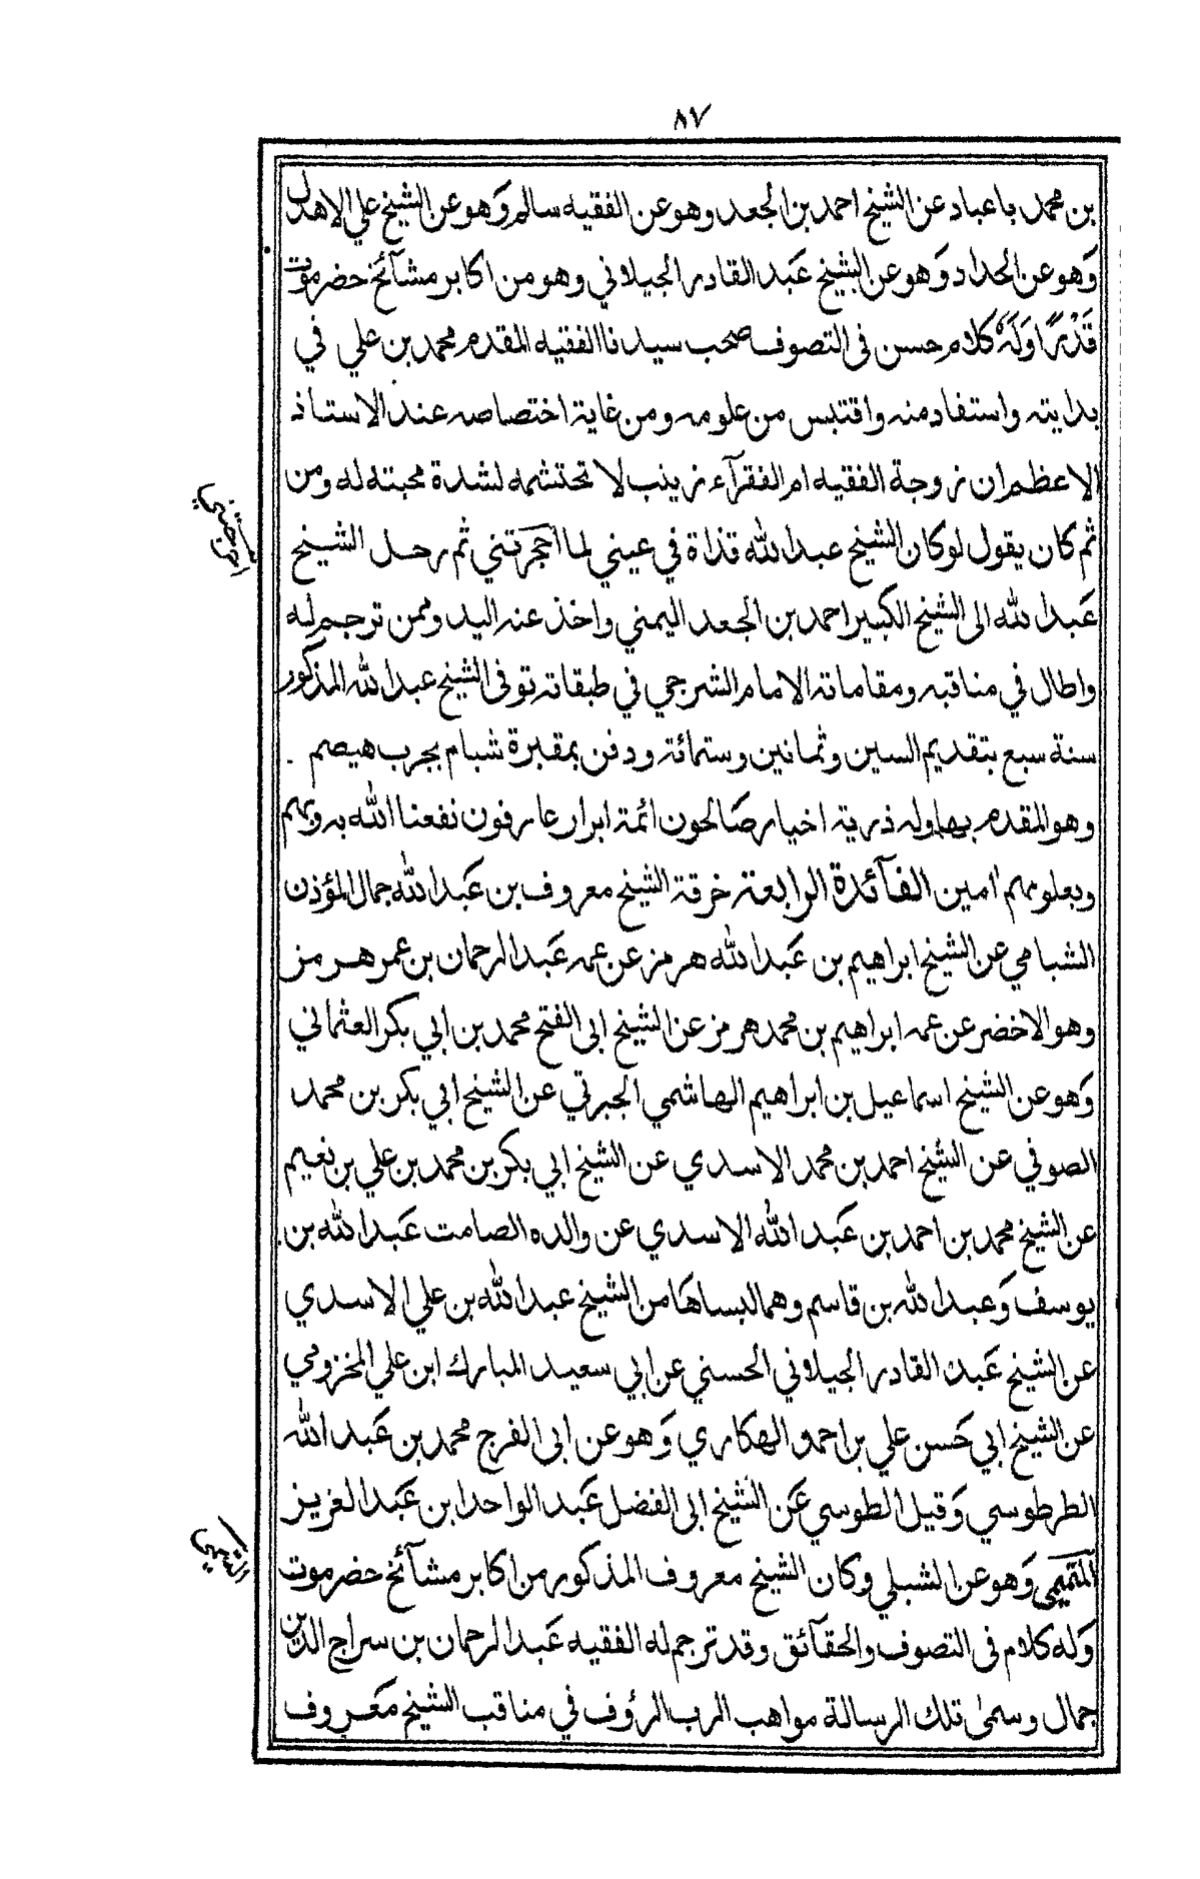 ٨٧
بن محمد باعباد عن الشيخ احمد بن الجعد وهو عن الفقيه سالم وَهو عن الشيخ علي الاهدل
وَهو عن الحداد وَهو عن الشيخ عَبد القادر الجيلاني وهو من اكابر مشآئخ حضرموت
قَدْرًا وَلَهٗ كلام حسن فى التصوف صحب سيدنا الفقيه المقدم محمد بن علي في
بدايته واستفاد منه واقتبس من علومه ومن غاية اختصاصه عند الاستاذ
الاعظم ان زوجة الفقيه ام الفقرآء زينب لا تحتشمه لشدة محبته له ومن
ثم كان يقول لو كان الشيخ عبد الله قذاة في عيني لما احجرتني ثم رحل الشيخ
عَبد الله الى الشيخ الكبير احمد بن الجعد اليمني واخذ عنه اليد وممن ترجم له
واطال في مناقبه ومقاماته الامام الشرجي في طبقاته توفى الشيخ عبد الله المذكور
سنة سبع بتقديم السين وثمانين وستمائة ودفن بمقبرة شبام بجرب هيصم
وهو المقدم بها وله ذرية اخيار صَالحون ائمة ابرار عارفون نفعنا الله به وبهم
وبعلومهم امين الفآئدة الرابعة خرقة الشيخ معروف بن عَبد الله جمال المؤذن
الشبامي عن الشيخ ابراهيم بن عَبد الله هرمز عن عمه عَبد الرحمان بن عمر هرمز
وهو الاخضر عن عمه ابراهيم بن محمد هرمز عن الشيخ ابى الفتح محمد بن ابي بكر العثماني
وَهو عن الشيخ اسماعيل بن ابراهيم الهاشمي الجبرتي عن الشيخ ابي بكر بن محمد
الصوفي عن الشيخ احمد بن محمد الاسدي عن الشيخ ابي بكر بن محمد بن علي بن نعيم
عن الشيخ محمد بن احمد بن عَبد الله الاسدي عن والده الصامت عَبد الله بن
يوسف وَعبد الله بن قاسم وهما لبساها من الشيخ عبد الله بن علي الاسدي
عن الشيخ عَبد القادر الجيلاني الحسني عن ابي سعيد المبارك ابن علي المخزومي
عن الشيخ ابي حَسن علي بن احمد الهكاري وَهو عن ابى الفرج محمد بن عَبد الله
الطرطوسي وَقيل الطوسي عَن الشيخ ابى الفضل عَبد الواحد ابن عَبد العزيز
التميمي وَهو عن الشبلي وكان الشيخ معروف المذكور من اكابر مشآئخ حضرموت
وَله كلام فى التصوف والحقآئق وقد ترجم له الفقيه عَبد الرحمان بن سراج الدين
جمال وسمىٰ تلك الرسالة مواهب الرب الرؤف في مناقب الشيخ مَعروف